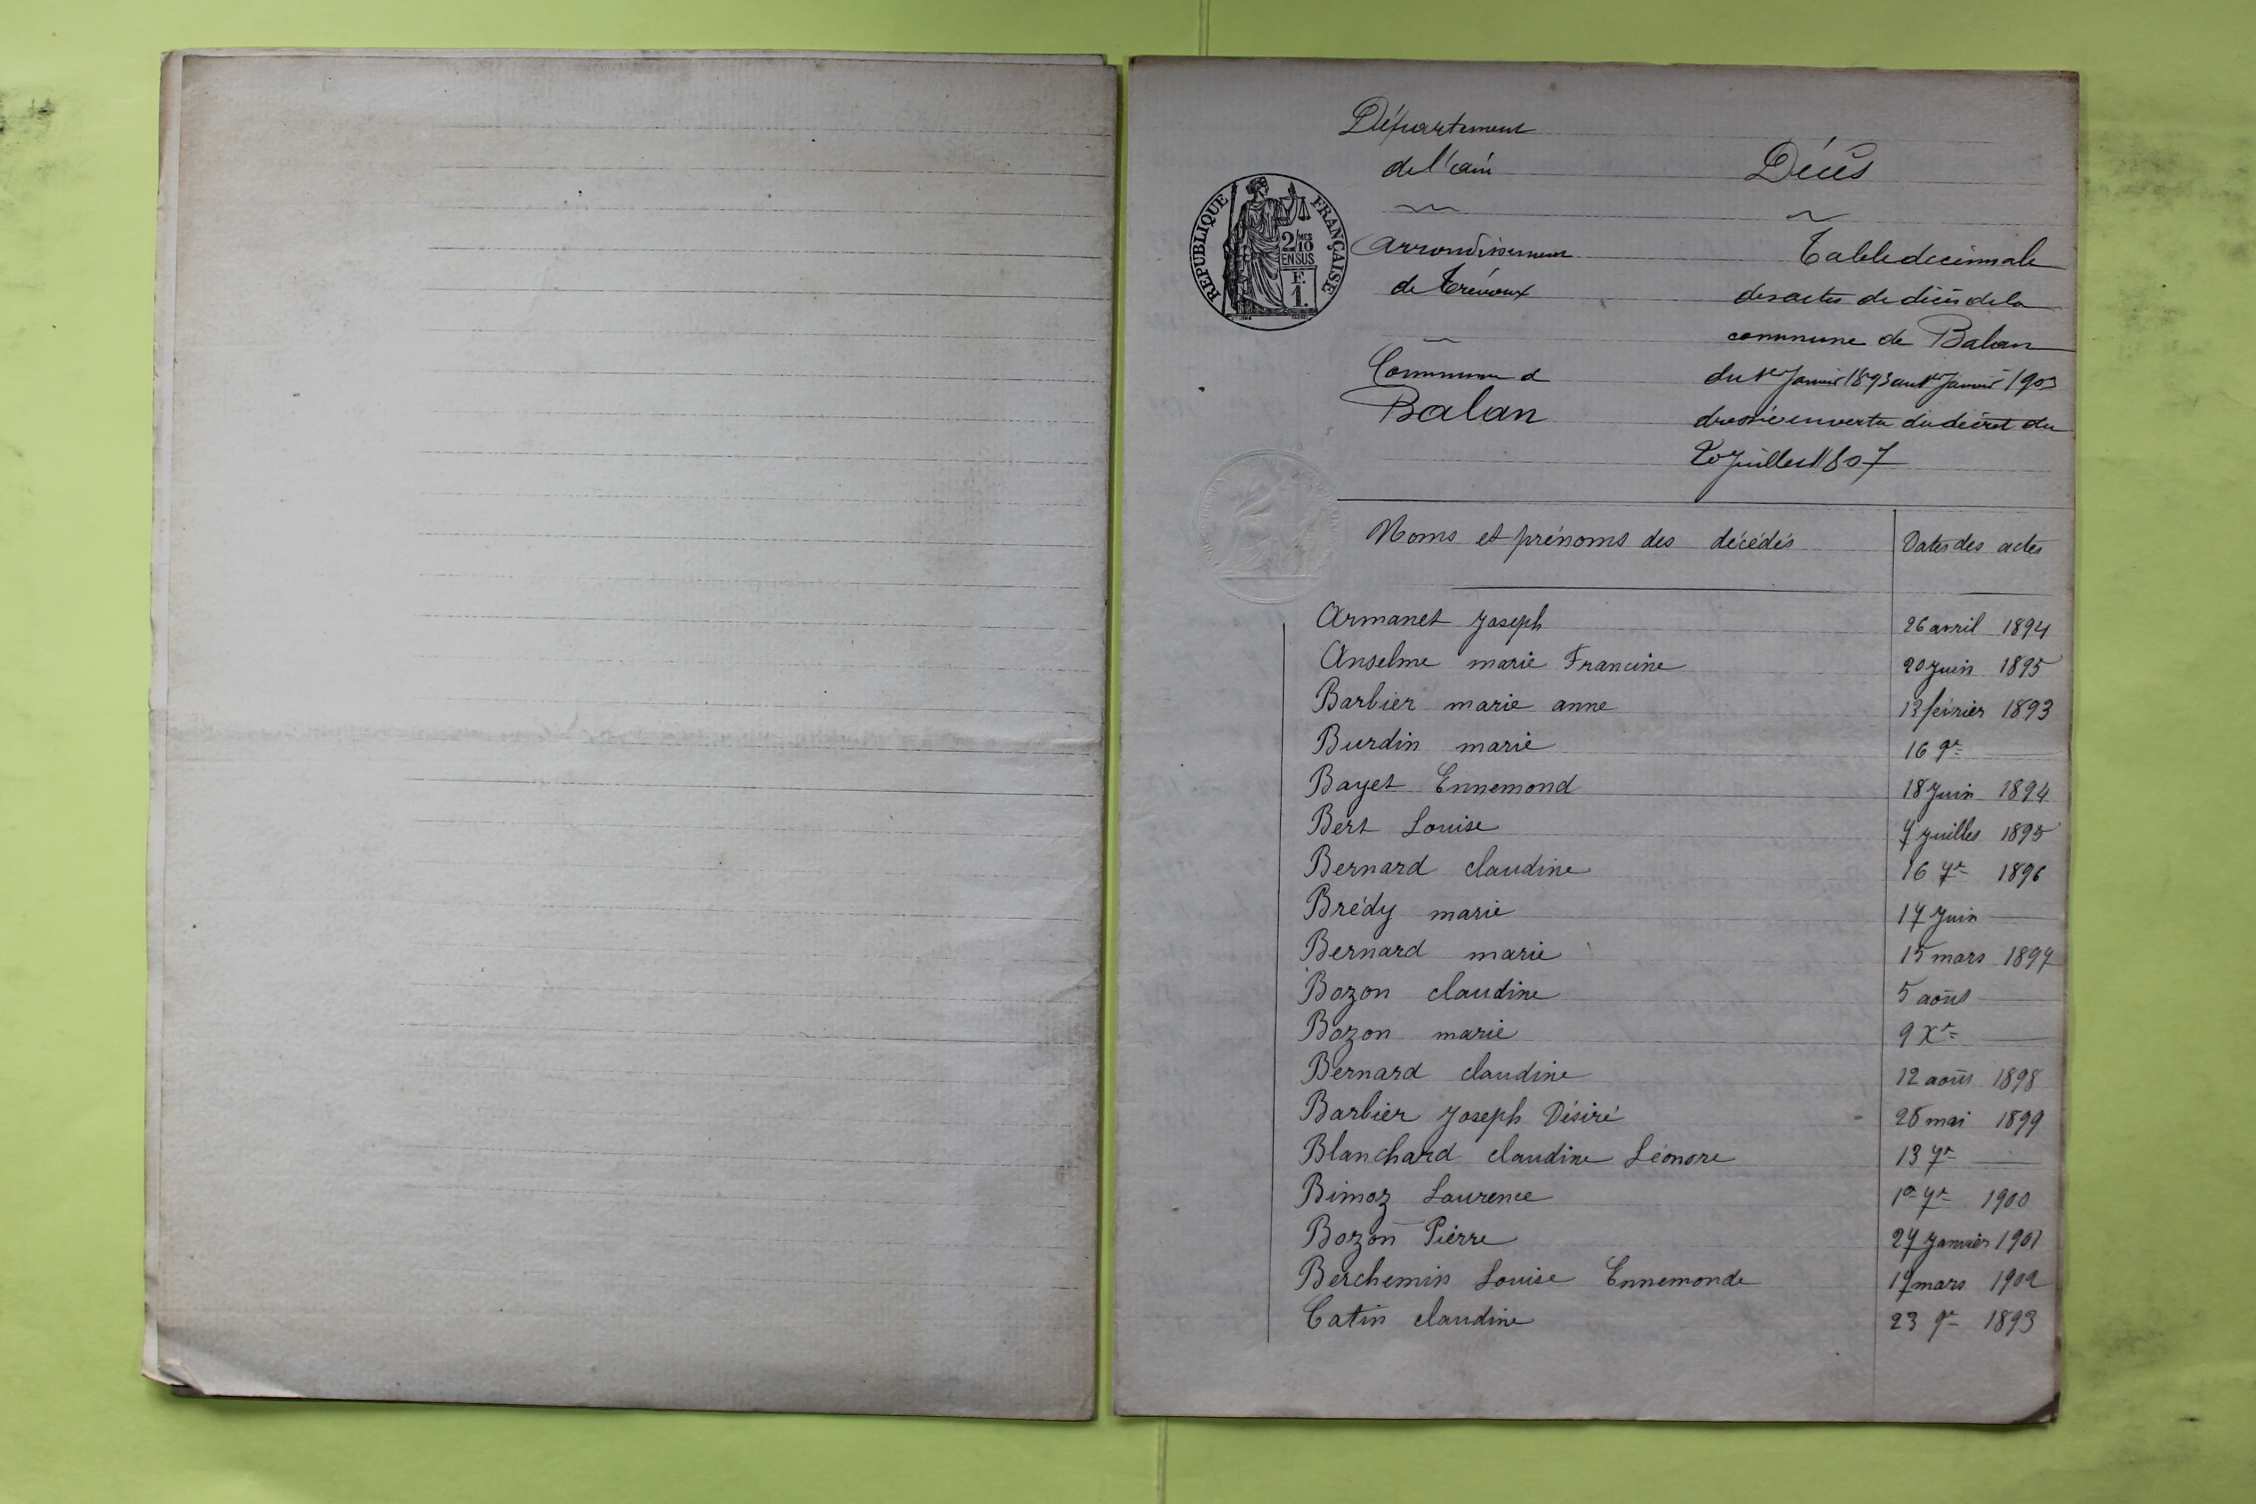 Département
de l'ain
Arrondissement
de Trévoux
Commune d
Balan
REPUBLIQUE FRANÇAISE
2/10 MES
EN SUS
F.
1.
Décès
Table décennale
des actes de décès de la
commune de Balan
du 1er Janvier 1893 au 1er Janvier 1903
dressée en vertu du décret du
20 Juillet 1807
Noms et prénoms des décédés Dates des actes
Armanet Joseph 26 avril 1894
Anselme marie Francine 20 Juin 1895
Barbier marie anne 13 février 1893
Burdin marie 16 9re —
Bayet Ennemond 18 Juin 1894
Bert Louise 7 Juillet 1895
Bernard claudine 16 7re 1896
Brédy marie 17 Juin —
Bernard marie 15 mars 1897
Bozon claudine 5 août —
Bozon marie 9 Xre —
Bernard claudine 12 août 1898
Barbier Joseph Désiré 26 mai 1899
Blanchard claudine Léonore 13 7re —
Bimoz Laurence 1er 7re 1900
Bozon Pierre 27 Janvier 1901
Berchemin Louise Ennemonde 17 mars 1902
Catin claudine 23 9re 1893